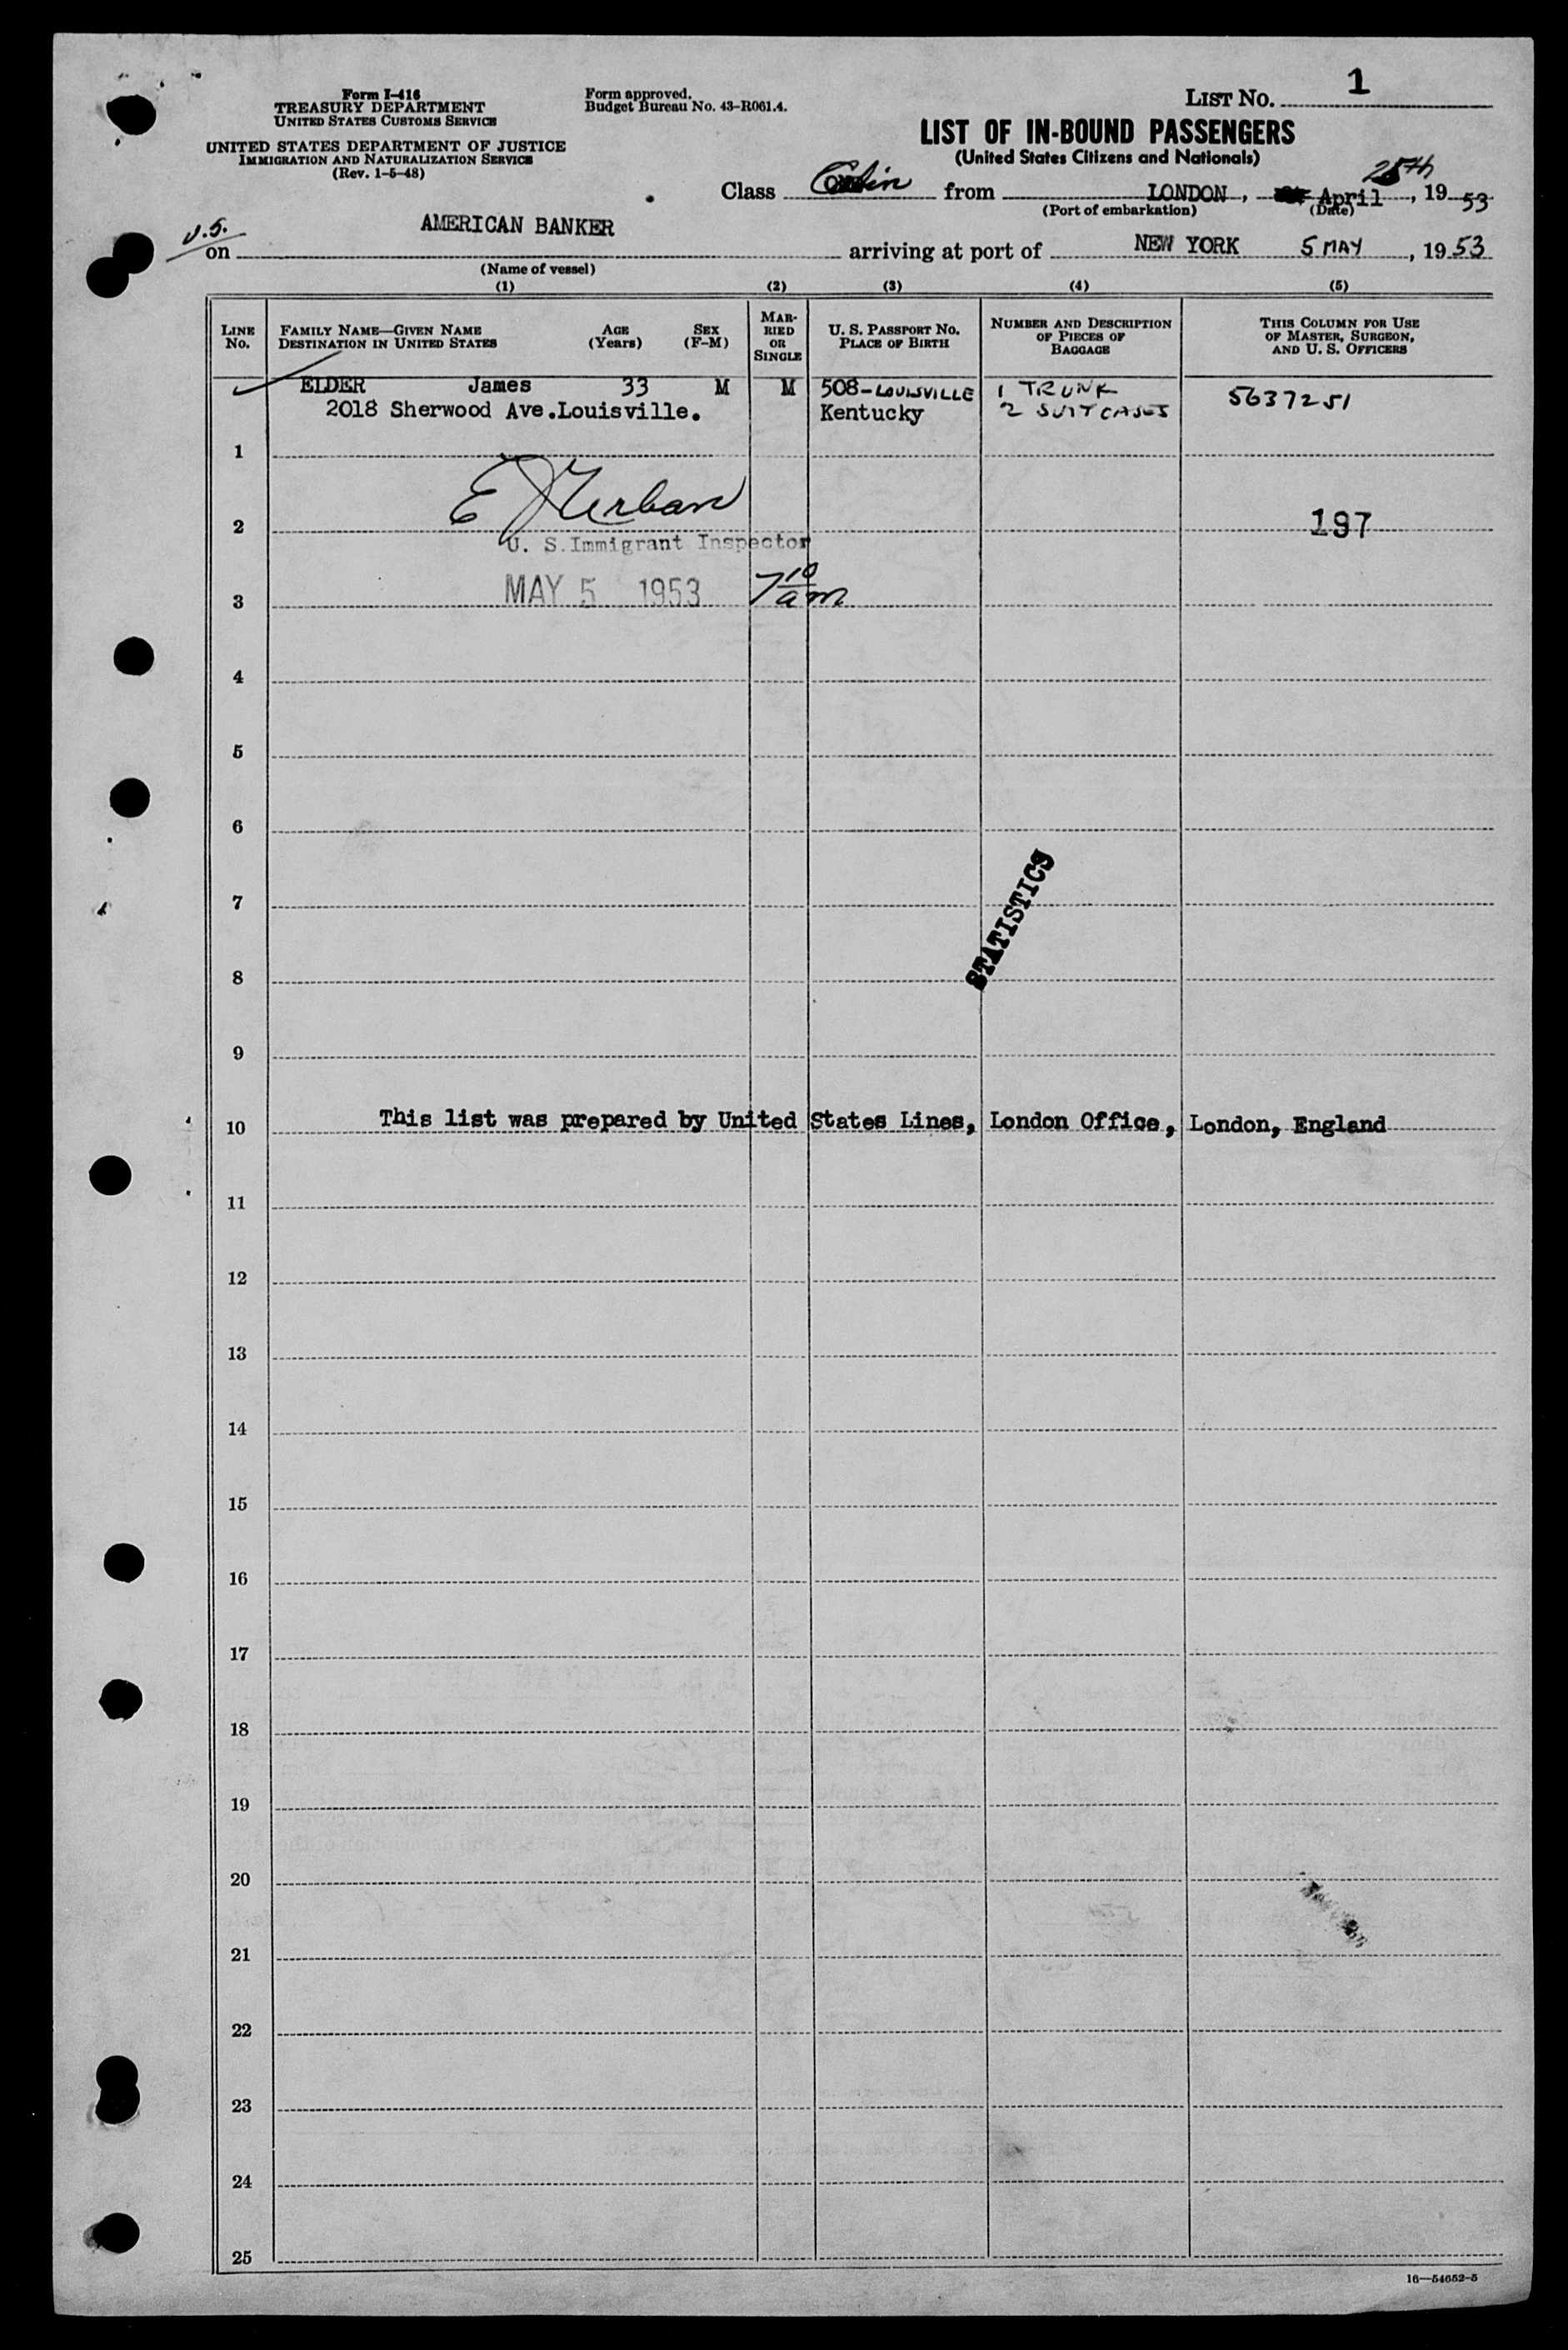 LIST NO. 1
Form I-416
TREASURY DEPARTMENT
UNITED STATES CUSTOMS SERVICE
Form approved.
Budget Bureau No. 43-R061.4.
UNITED STATES DEPARTMENT OF JUSTICE
IMMIGRATION AND NATURALIZATION SERVICE
(Rev. 1-5-48)
LIST OF IN-BOUND PASSENGERS
(United States Citizens and Nationals)
Class Cabin from LONDON, April 25th, 1953
(Port of embarkation) (Date)
U.S.
on AMERICAN BANKER arriving at port of NEW YORK 5 MAY, 1953
(Name of vessel)
(1) (2) (3) (4) (5)
LINE No. FAMILY NAME—GIVEN NAME DESTINATION IN UNITED STATES AGE (Years) SEX (F-M) MARRIED OR SINGLE U. S. PASSPORT NO. PLACE OF BIRTH NUMBER AND DESCRIPTION OF PIECES OF BAGGAGE THIS COLUMN FOR USE OF MASTER, SURGEON, AND U. S. OFFICERS
ELDER James 33 M M 508-LOUISVILLE 1 TRUNK 5637251
2018 Sherwood Ave.Louisville. Kentucky 2 SUITCASES
1
2 197
U. S. Immigrant Inspector
3 MAY 5 1953 7 10 am
4
5
6
7
STATISTICS
8
9
10 This list was prepared by United States Lines, London Office, London, England
11
12
13
14
15
16
17
18
19
20
21
22
23
24
25
16—54652-5